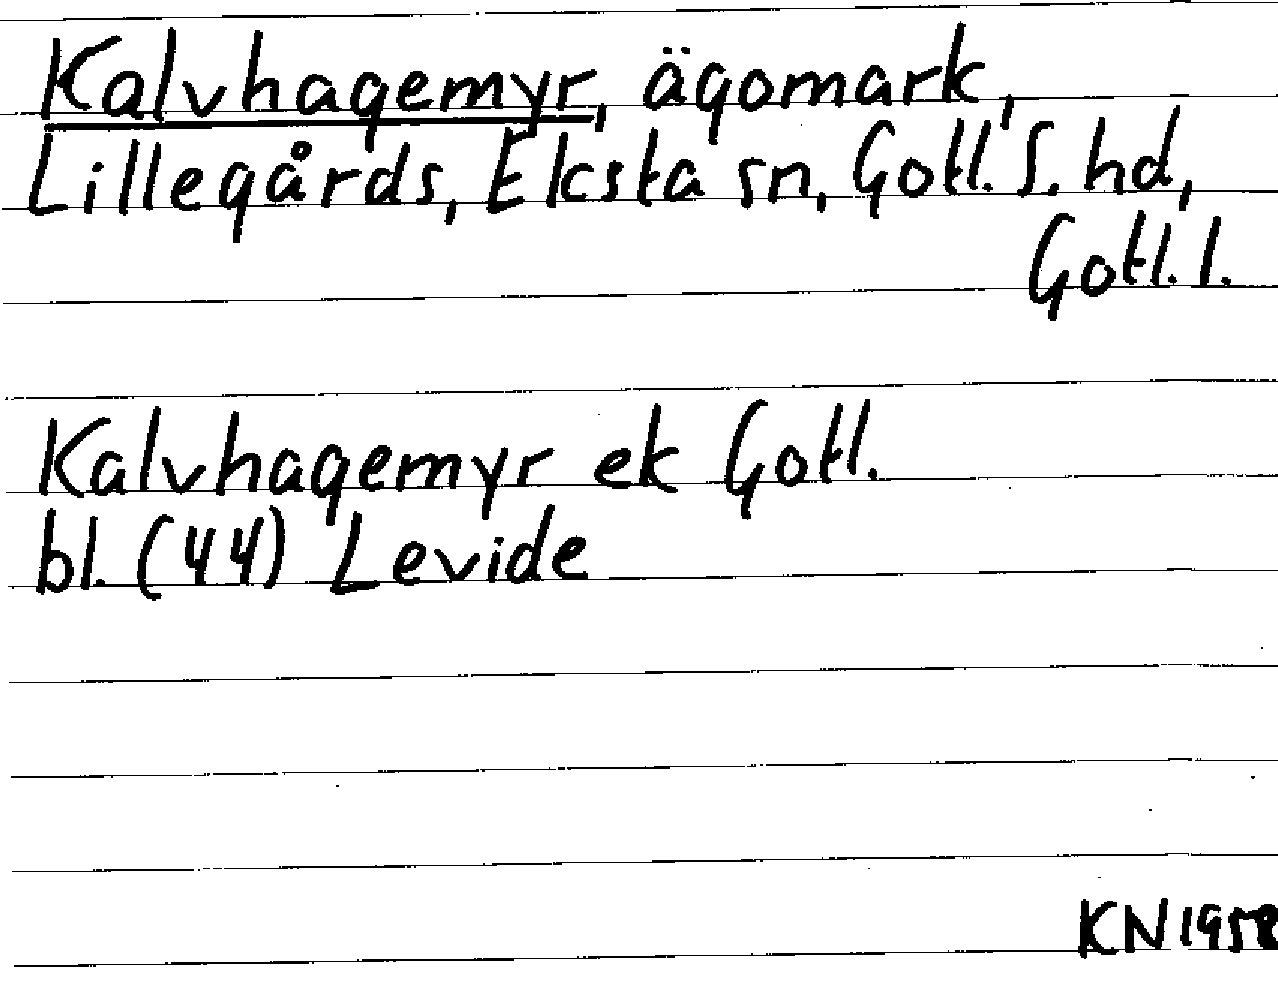 Kalvhagemyr, ägomark,
Lillegårds, Eksta sn, Gotl. S. hd,
Gotl. l.
Kalvhagemyr ek Gotl.
bl. (44) Levide
KN 1958